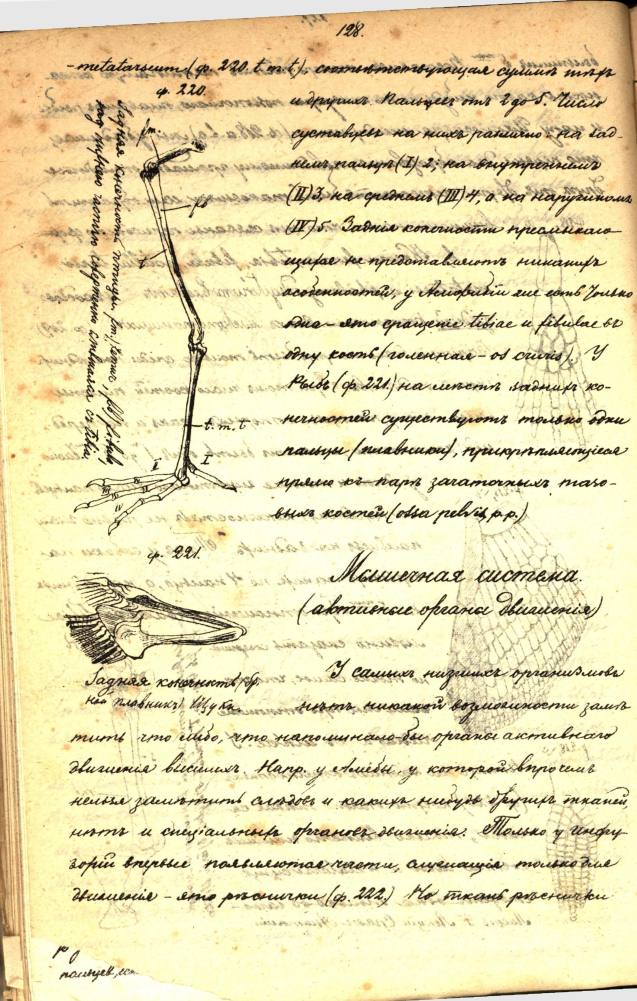 128.
-metatarseum (ф. 220. t. m. t.), соответствующая суммѣ
ф. 220.
и другихъ пальцевъ отъ 2 до 5. Число
суставовъ на нихъ различно: на зад-
немъ пальцѣ (I) 2; на внутреннемъ
(II) 3, на среднемъ (III) 4, а на наружномъ
(IV) 5. Заднія конечности пресмыкаю-
щихся не представляютъ никакихъ
особенностей, у Амфибій же есть только
одна - это сращеніе tibiae и fibulae въ
одну кость (голенная - os cruris). У
Рыбъ (ф. 221.) на мѣстѣ заднихъ ко-
нечностей существуютъ только одни
пальцы (плавники), прикрѣпляющіеся
прямо къ парѣ зачаточныхъ тазо-
выхъ костей (ossa pelvis, p.p.)
Задняя конечность птицы. fm)
t. m. t
I
II
ф. 221.
Задняя конечность (бр.
ной плавникъ) Щуки.
Мышечная система.
(активные органы движенія)
У самыхъ низшихъ организмовъ
нѣтъ никакой возможности замѣ-
тить что либо, что напоминало-бы органы активнаго
движенія высшихъ. Напр. у Амёбы, у которой впрочемъ
нельзя замѣтить слѣдовъ и какихъ нибудь другихъ тканей,
нѣтъ и спеціальныхъ органовъ движенія. Только у Инфу-
зорій впервые появляются части, служащія только для
движенія - это рѣснички (ф. 222.) Но ткань рѣснички